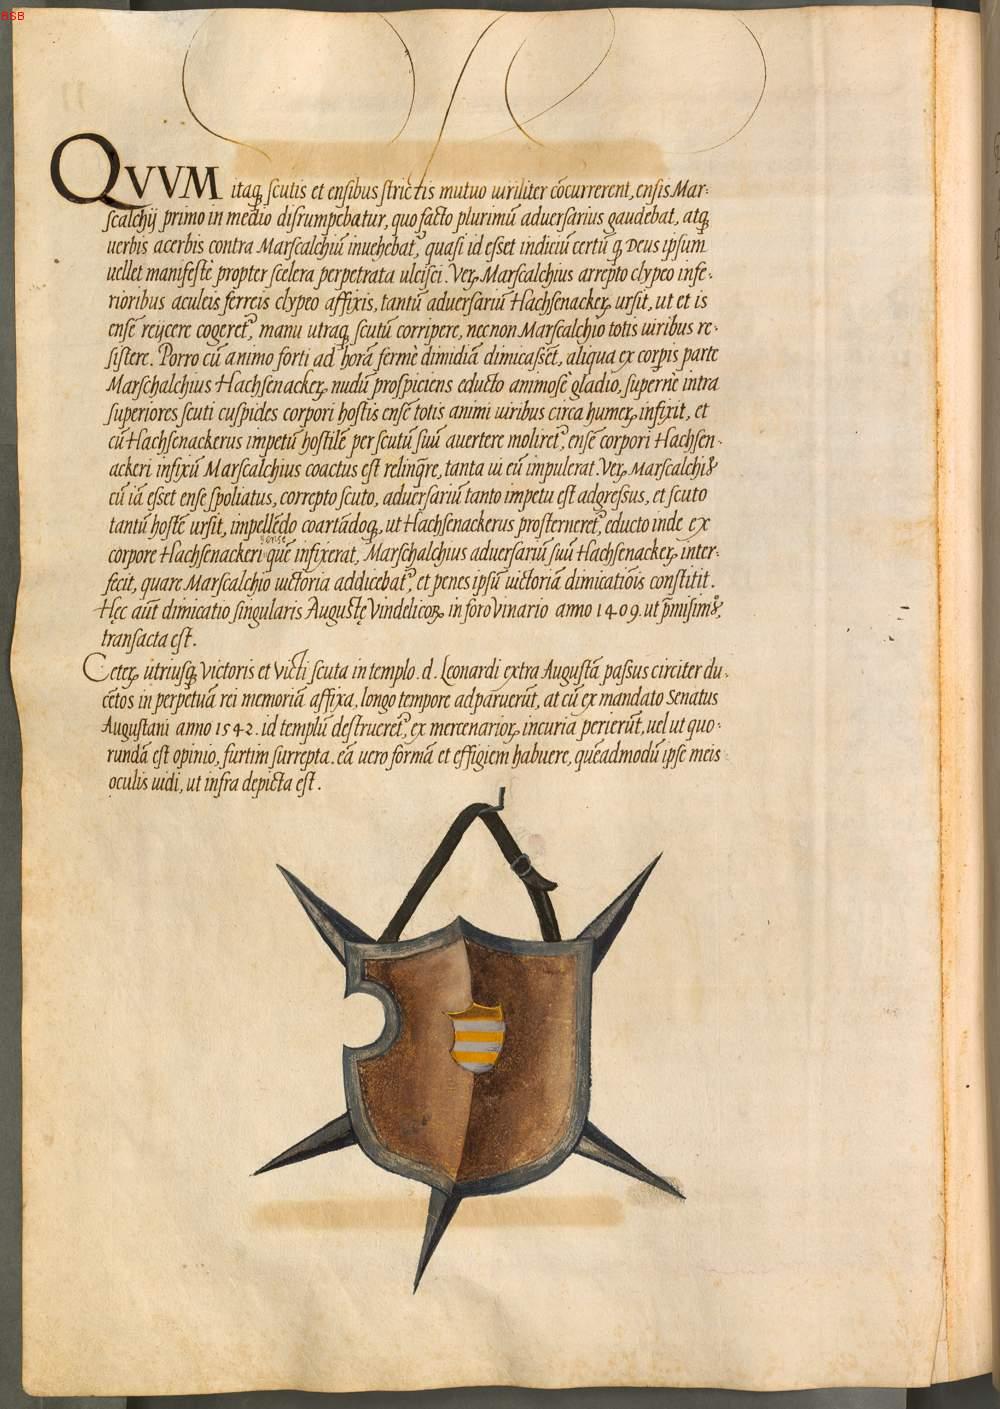 BSB
QVVM itaq₃ scutis et ensibus strictis mutuo uiriliter cōcurrerent, ensis Mar:
scalchij primo in medio disrumpebatur, quo facto plurimū aduersarius gaudebat, atq₃
uerbis acerbis contra Marscalchiū inuehebat᷒, quasi id esset indiciū certū q₃ Deus ipsum
uellet manifestè propter scelera perpetrata ulcisci. Veꝝ Marscalchius arrepto clypeo infe:
rioribus aculeis ferreis clypeo affixis, tantū aduersariū Hachsenackeꝝ ursit, ut et is
ense reijcere cogeret᷒, manu utraq₃ scutū corripere, necnon Marscalchio totis uiribus re:
sistere. Porro cū animo forti ad horā fermè dimidiā dimicasse͞t, aliqua ex corꝑis parte
Marschalchius Hachsenackeꝝ nudū prospiciens educto animosè gladio, supernè intra
superiores scuti cuspides corpori hostis ense totis animi uiribus circa humeꝝ infixit, et
cū Hachsenackerus impetū hostilē per scutū suū auertere moliret᷒, ensē corpori Hachsen:
ackeri infixū Marscalchius coactus est relinq̃re, tanta ui eū impulerat. Veꝝ Marscalchi᷒
cū iā esset ense spoliatus, correpto scuto, aduersariū tanto impetu est adgressus, et scuto
tantū hostē ursit, impellēdo coartādoq₃, ut Hachsenackerus prosterneret᷒, educto inde ex
ense
corpore Hachsenackeri quē infixerat, Marschalchius aduersariū suū Hachsenackeꝝ inter:
fecit, quare Marscalchio uictoria addicebat᷒, et penes ipsū uictoriā dimicatiōis constitit.
Hęc aūt dimicatio singularis Augustę Vindelicoꝝ in foro Vinario anno 1409. ut p̄misim᷒,
transacta est.
Ceteꝝ utriusq₃ Victoris et Victi scuta in templo. d. Leonardi extra Augustā passus circiter du:
cētos in perpetuā rei memoriā affixa, longo tempore adparuerūt, at cū ex mandato Senatus
Augustani anno 1542. id templū destrueret᷒, ex mercenarioꝝ incuria perierūt, uel ut quo:
rundā est opinio, furtim surrepta. eā uero formā et effigiem habuere, quēadmodū ipse meis
oculis uidi, ut infra depicta est.